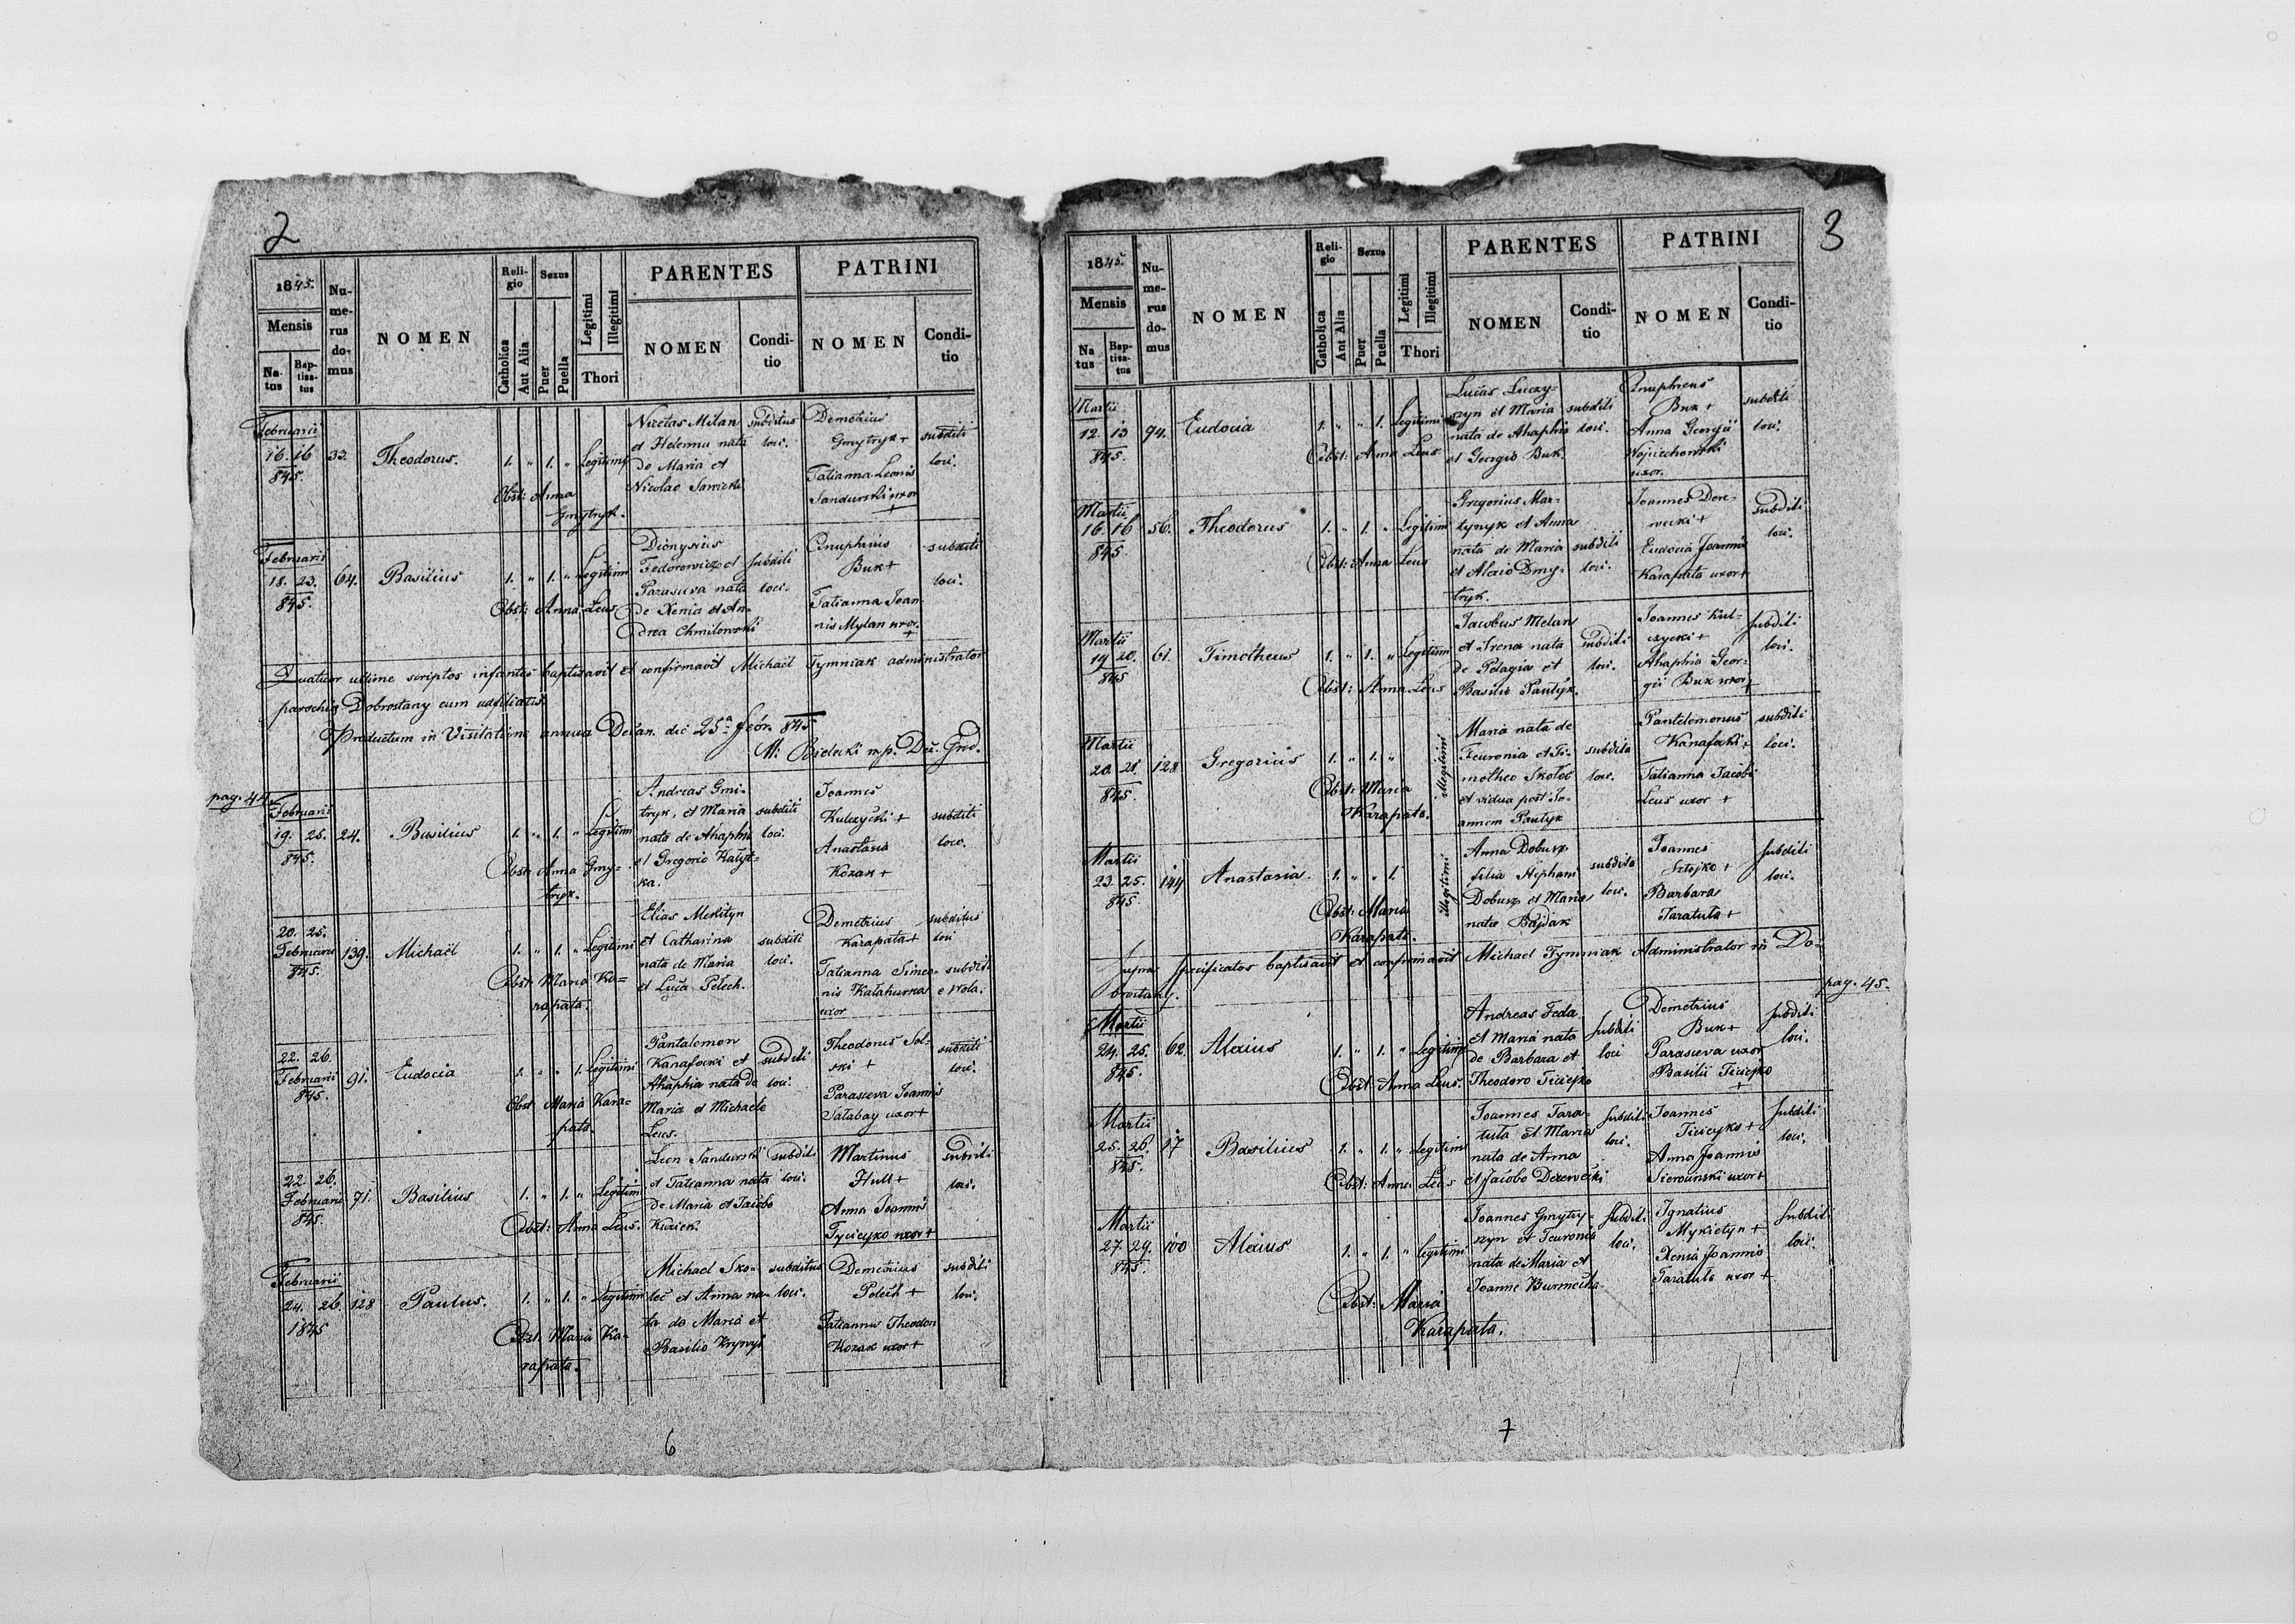 2
1845.
Mensis
Na-
tus
Bap-
tisa-
tus
Nu-
me-
rus
do-
mus
NOMEN
Reli-
gio
Catholica
Aut Alia
Sexus
Puer
Puella
Legitimi
Illegitimi
Thori
PARENTES
NOMEN
Condi-
tio
PATRINI
NOMEN
Condi-
tio
Februarii
16. 16
845.
33.
Theodorus.
1. " 1. " Legitimi
Obst: Anna
Gmytryk.
Nicetas Milan
et Helenna nata
de Maria et
Nicolao Sawicki
subditus
loci.
Demetrius
Gmytryk +
Tatianna Leonis
Sandurski uxor
+
subditi
loci.
Februarii
18. 23.
845.
64.
Basilius
1. " 1. " Legitimi
Obst: Anna Leus
Dionysius
Fedorowicz et
Parasceva nata
de Xenia et An-
drea Chmilowski
subditi
loci.
Onuphrius
Buk +
Tatianna Joan-
nis Mylan uxor.
+
subditi
loci.
Quatuor ultime scriptos infantes baptisavit et confirmavit Michaël Tymniak administrator
parochia Dobrostany cum adfiliatis.
Productum in Visitatione annua Decan. die 25a Febr. 845
M: Bielecki mp. Dec. Grod.
pag. 44.
Februarii
19. 25.
845.
24.
Basilius
1. " 1. " Legitimi
Obst: Anna Gmy-
tryk.
Andreas Gmi-
tryk, et Maria
nata de Ahaphia
et Gregorio Kałyt-
ka.
subditi
loci.
Joannes
Kulczycki +
Anastasia
Kozak +
subditi
loci.
20. 25.
Februarii
845.
139.
Michaël
1. " 1. " Legitimi
Obst: Maria Ka=
rapata.
Elias Mekityn
et Catharina
nata de Maria
et Luca Pelech.
subditi
loci.
Demetrius
Karapata +
Tatianna Simeo-
nis Kałahurka
uxor
subditus
loci
subditi
e Wola.
22. 26.
Februarii
845.
91.
Eudocia
1. " " 1. Legitimi
Obst: Maria Kara=
pata.
Pantalemon
Kanafocki et
Ahaphia nata de
Maria et Michaele
Leus.
subditi
loci.
Theodorus Sol-
ski +
Parasceva Joannis
Satabay uxor +
subditi
loci.
22. 26.
Februarii
845.
71.
Basilius
1. " 1. " Legitimi
Obst: Anna Leus.
Leon Sandurski
et Tatianna nata
de Maria et Jacobo
subditi
loci.
Martinus
Hull +
Anna Joannis
Tyciejko uxor +
subditi
loci.
Februarii
24. 26.
1845
128
Paulus.
1. " 1. " Legitimi
Obst: Maria Ka-
rapata.
Michael Sko-
łoć et Anna na-
ta de Maria et
Basilio Krywyj
subditus
loci.
Demetrius
Pelech +
Tatianna Theodori
Kozak uxor +
subditi
loci.
6
3
1845.
Mensis
Na
tus
Bap-
tisa-
tus
Nu-
me-
rus
do-
mus
NOMEN
Reli-
gio
Catholica
Aut Alia
Sexus
Puer
Puella
Legitimi
Illegitimi
Thori
PARENTES
NOMEN
Condi-
tio
PATRINI
NOMEN
Condi-
tio
Martii
12. 13
845.
94.
Eudocia
1. " " 1. Legitimi
Obst: Anna Leus
Lucas Luczy-
szyn et Maria
nata de Ahaphia
et Georgio Buk.
subditi
loci.
Onuphreus
Buk +
Anna Georgii
Wojciechowski
uxor.
subditi
loci.
Martii
16. 16
845
56.
Theodorus
1. " 1. " Legitimi
Obst: Anna Leus
Gregorius Mar-
tynyk et Anna
nata de Maria
et Alexio Dmy-
tryk.
subditi
loci.
Joannes Dere-
wecki +
Eudocia Joannis
Karapata uxor +
subditi
loci.
Martii
19 20.
845
61.
Timotheus
1. " 1. " Legitimi
Obst: Anna Leus
Jacobus Melan
et Irena nata
de Pelagia et
Basilio Pautyk.
subditi
loci.
Joannes Kul-
czycki +
Ahaphia Geor-
gii Buk uxor +
subditi
loci.
Martii
20. 21.
845.
128
Gregorius
1. " 1. " Illegitimi
Obst: Maria
Karapata.
Maria nata de
Feuronia et Ti-
motheo Skołoć
et vidua post Jo-
annem Pautyk
subdita
loci.
Pantelemonus
Kanafocki +
Tatianna Jacobi
Leus uxor +
subditi
loci.
Martii
23. 25.
845
144
Anastasia.
1. " " 1. Illegitimi
Obst: Maria
Karapata.
Anna Dobusz
filia Stephani
Dobusz et Maria
natae Bajdak
subdita
loci.
Joannes
Sztojko +
Barbara
Taratuta +
subditi
loci.
Supra specificatos baptisavit et confirmavit Michael Tymniak Administrator in Do-
brostany.
pag. 45.
Martii
24. 25.
845.
62.
Alexius
1. " 1. " Legitimi
Obst: Anna Leus.
Andreas Feda
et Maria nata
de Barbara et
Theodoro Ticiejko
subditi
loci
Demetrius
Buk +
Parasceva uxor
Basilii Ticiejko
+
subditi
loci.
Martii
25. 26.
845.
17
Basilius
1. " 1. " Legitimi
Obst: Anna Leus
Joannes Tara-
tuta et Maria
nata de Anna
et Jacobo Derewecki
subditi
loci.
Joannes
Ticicyko +
Anna Joannis
Sierouński uxor +
subditi
loci.
Martii
27. 29.
845.
100
Alexius
1. " 1. " legitimi
Obst: Maria
Karapata.
Joannes Gmytry-
szyn et Feuronia
nata de Maria et
Joanne Burmecha.
subditi
loci.
Ignatius
Mykietyn +
Xenia Joannis
Taratuta uxor +
subditi
loci.
7